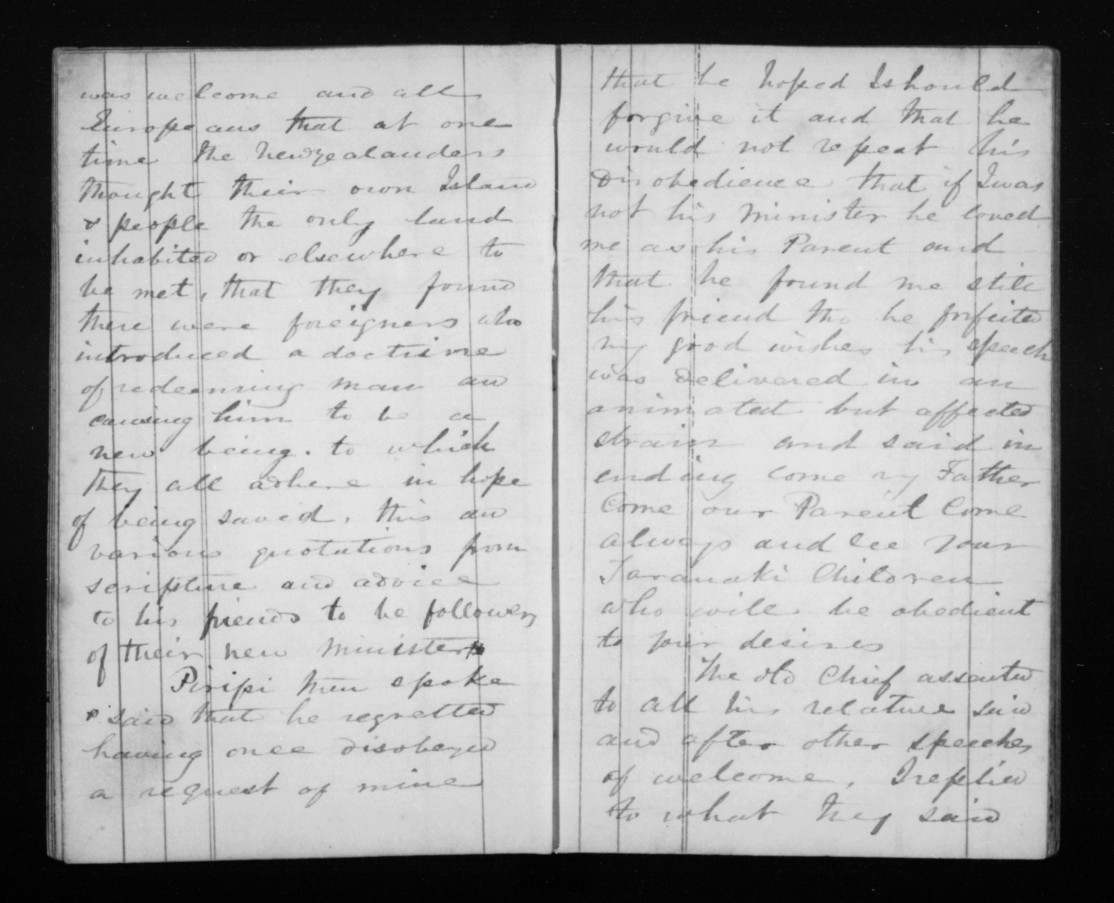 was welcome and all
Europeans that at one
time the Newzealanders
thought their own Island
& people the only land
inhabited or elsewhere to
be met, that they found
there were foreigners who
introduced a doctrine
of redeeming man and
causing him to be a
new being. to which
they all adhere in hope
of being saved, this and
various quotations from
scripture and advice
to his friends to be followers
of their new minister
Piripi then spoke
& said that he regretted
having once disobeyed
a request of mine
that he hoped I should
forgive it and that he
would not repeat his
Disobedience that if I was
not his Minister he loved
me as his Parent and
that he found me still
his friend tho he forfeited
my good wishes his speech
was delivered in an
animated but affected
strain and said in
ending come my Father
Come our Parent Come
always and see your
Taranaki Children
who will be obedient
to your desires
The old Chief assented
to all his relative said
and after other speeches
of welcome, I replied
to what they said